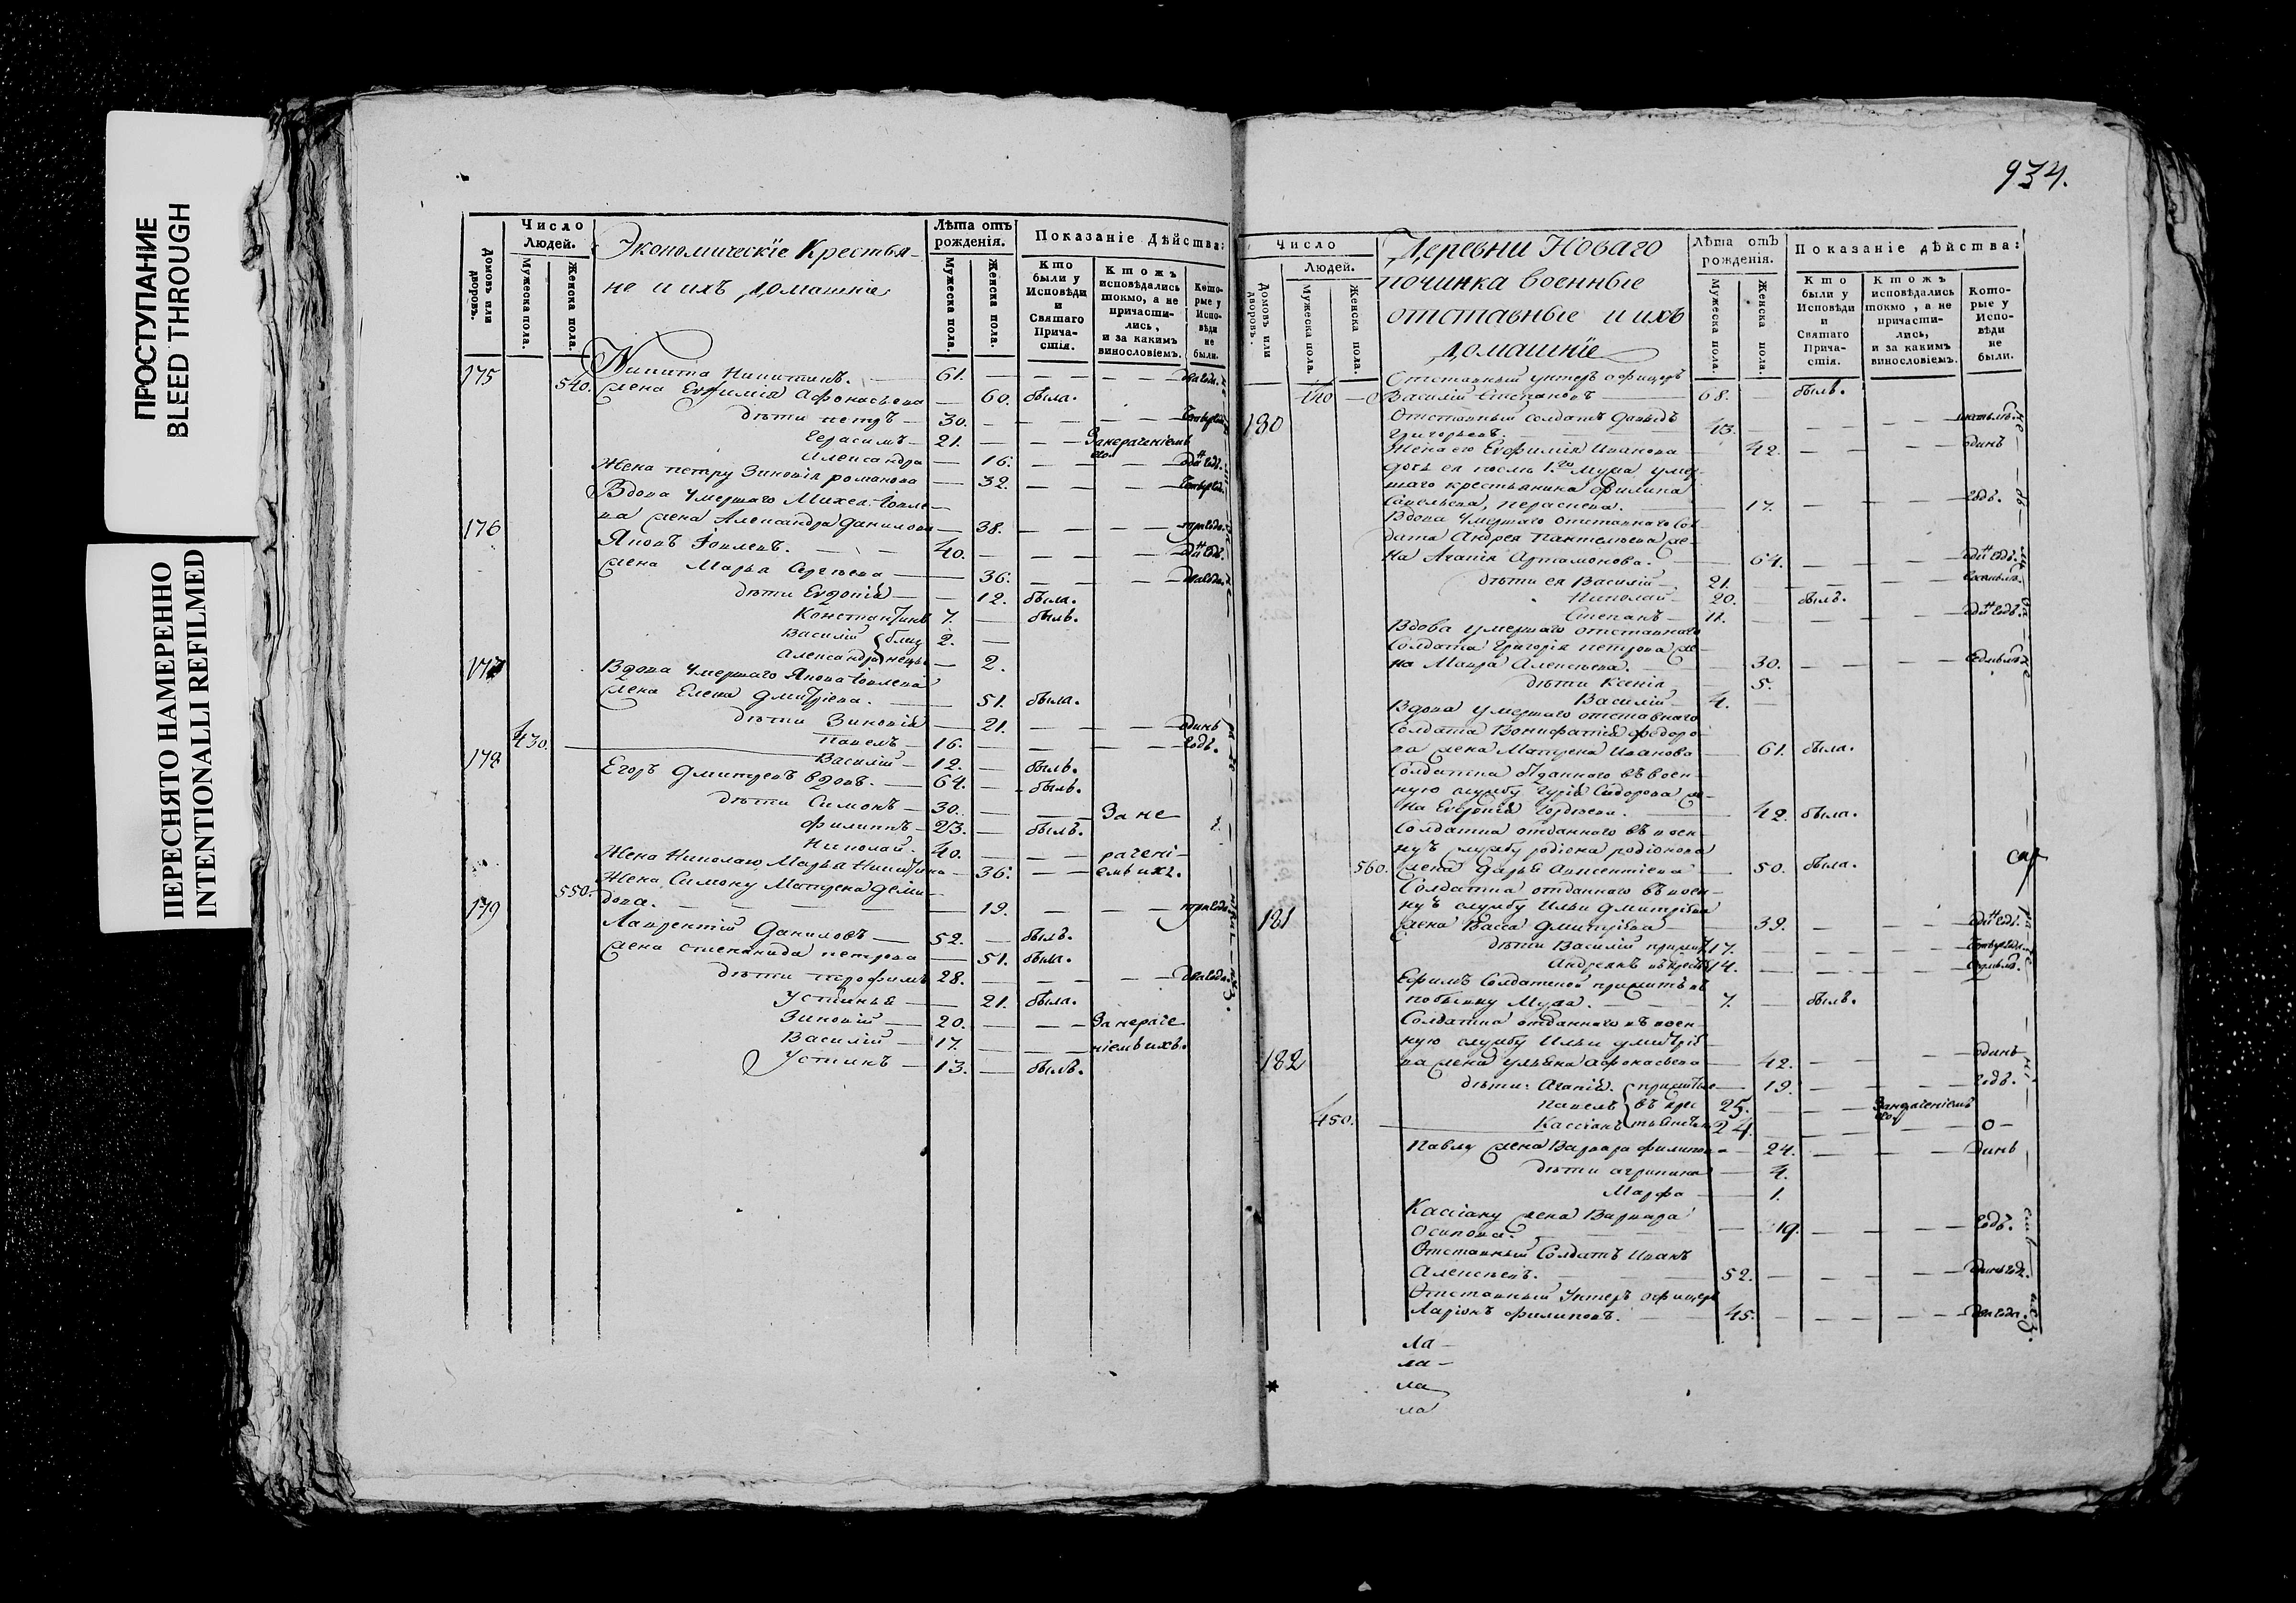 ПРОСТУПАНИЕ
BLEED THROUGH
ПЕРЕСНЯТО НАМЕРЕННО
INTENTIONALLI REFILMED
Домовъ или дворовъ.
Число Людей.
Мужеска пола.
Женска пола.
Экономическіе Крестья-
не и ихъ домашніе
Лѣта отъ рожденія.
Мужеска пола.
Женска пола.
Показаніе Дѣйства:
Кто были у Исповѣди и Святаго Прича-стія.
Ктожъ исповѣдались токмо, а не причасти-лись, и за какимъ винословіемъ.
Кото-рые у Испо-вѣди не были.
175 Никита Никитинъ. 61.
540. жена Евфимія Афонасьева 60. была.
дѣти петръ 30.
Герасимъ 21. За нераченіемъ
Александра 16.
Жена петру Зиновія романова 32.
Вдова умершаго Михея Іовле-
176 ва жена Александра данилова 38.
Яковъ Іовлевъ. 40.
жена Марья Сергѣева 36.
дѣти Евдокія 12. была.
Константинъ 7. былъ.
Василій 2.
Александра 2.
177 Вдова умершаго Якова Іовлева
жена Елена дмитріева. 51. была.
дѣти Зиновія 21. одинъ
430. Павелъ 16. годъ.
178 Василій 12. былъ.
Егоръ дмитревъ вдовъ. 64. былъ.
дѣти Симонъ 30. За не
филиппъ 23. былъ.
Николай. 40. рачені-
Жена Николаю Марья Никитина 36. емъ ихъ.
Жена Симону Матрена деми-
179 550. дова. 19.
Лаврентій Даниловъ 52. былъ.
жена степанида петрова 51. была.
дѣти трофимъ 28.
Устинья 21. была.
Зиновій 20. За нераче
Василій 17. ніемъ ихъ.
Устинъ 13. былъ.
934.
Домовъ или дворовъ.
Число Людей.
Мужеска пола.
Женска пола.
Деревни Новаго
починка военные
отставные и ихъ
домашніе
Лѣта отъ рожденія.
Мужеска пола.
Женска пола.
Показаніе дѣйства:
Кто были у Исповѣди и Святаго Прича-стія.
Ктожъ исповѣдались токмо, а не причасти-лись, и за какимъ винословіемъ.
Кото-рые у Испо-вѣди не были.
Отставный унтеръ офицеръ
440 Василій Степановъ 68. былъ.
180 Отставный солдатъ Давыдъ
Григорьевъ. 43.
Жена его Евфимія Иванова 42. одинъ
дочь ея послѣ 1го мужа умер-
шаго крестьянина Филипа
Савельева, 17. годъ.
Вдова умершаго отставнаго сол-
дата Андрея Пантелѣева же-
на Агапія Артамонова. 64.
дѣти ея Василій 21.
Николай 20. былъ.
Степанъ 11.
Вдова умершаго отставнаго
Солдата Григорія петрова же-
на Мавра Алексѣева. 30.
дѣти Ксенія 5.
Василій 4.
Вдова умершаго отставнаго
Солдата Вонифатія Федоро-
ва жена Матрена Иванова 61. была.
Солдатка отданнаго въ воен-
ную службу Гурія Сидорова же-
на Евдокія 42. была.
Солдатка отданнаго въ воен-
ну службу родіона родіонова
560. жена Дарья Авксентіева 50. была.
Солдатка отданнаго въ воен-
ну службу Ильи Дмитріева
181 жена Васса дмитріева 39.
дѣти Василій 17.
Андреянъ 14.
Ефимъ Солдаткой прижитъ въ
побывку Мужа. 7. былъ.
Солдатка отданнаго въ воен-
ную службу Ильи дмитріе-
182 ва жена ульяна Афонасьева 42. одинъ
дѣти: Агапія. прижитые 19. годъ.
Павелъ въ крес 25. За нераченіемъ
450. Кассіанъ тьянствѣ 24. о-
Павлу жена Варвара филипова 24. динъ
дѣти агрипина 4.
Марфа 1.
Кассіану жена Варвара
Осипова. 19. годъ.
Отставный Солдатъ Иванъ
Алексѣевъ. 52.
Отставный Унтеръ офицеръ
Ларіонъ филиповъ. 45.
ла
ла
ла
ла